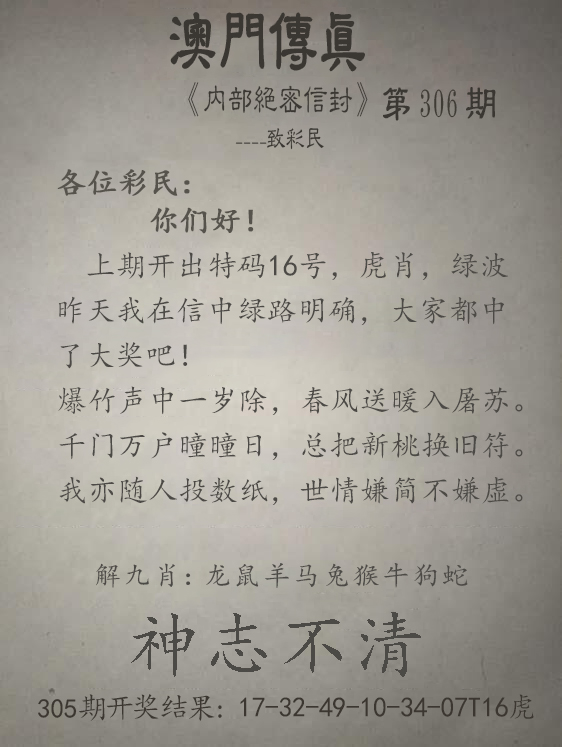 澳門傳眞
《内部絕密信封》第306期
----致彩民
各位彩民：
你们好！
上期开出特码16号，虎肖，绿波
昨天我在信中绿路明确，大家都中
了大奖吧！
爆竹声中一岁除，春风送暖入屠苏。
千门万户曈曈日，总把新桃换旧符。
我亦随人投数纸，世情嫌简不嫌虚。
解九肖：龙鼠羊马兔猴牛狗蛇
神志不清
305期开奖结果：17-32-49-10-34-07T16虎